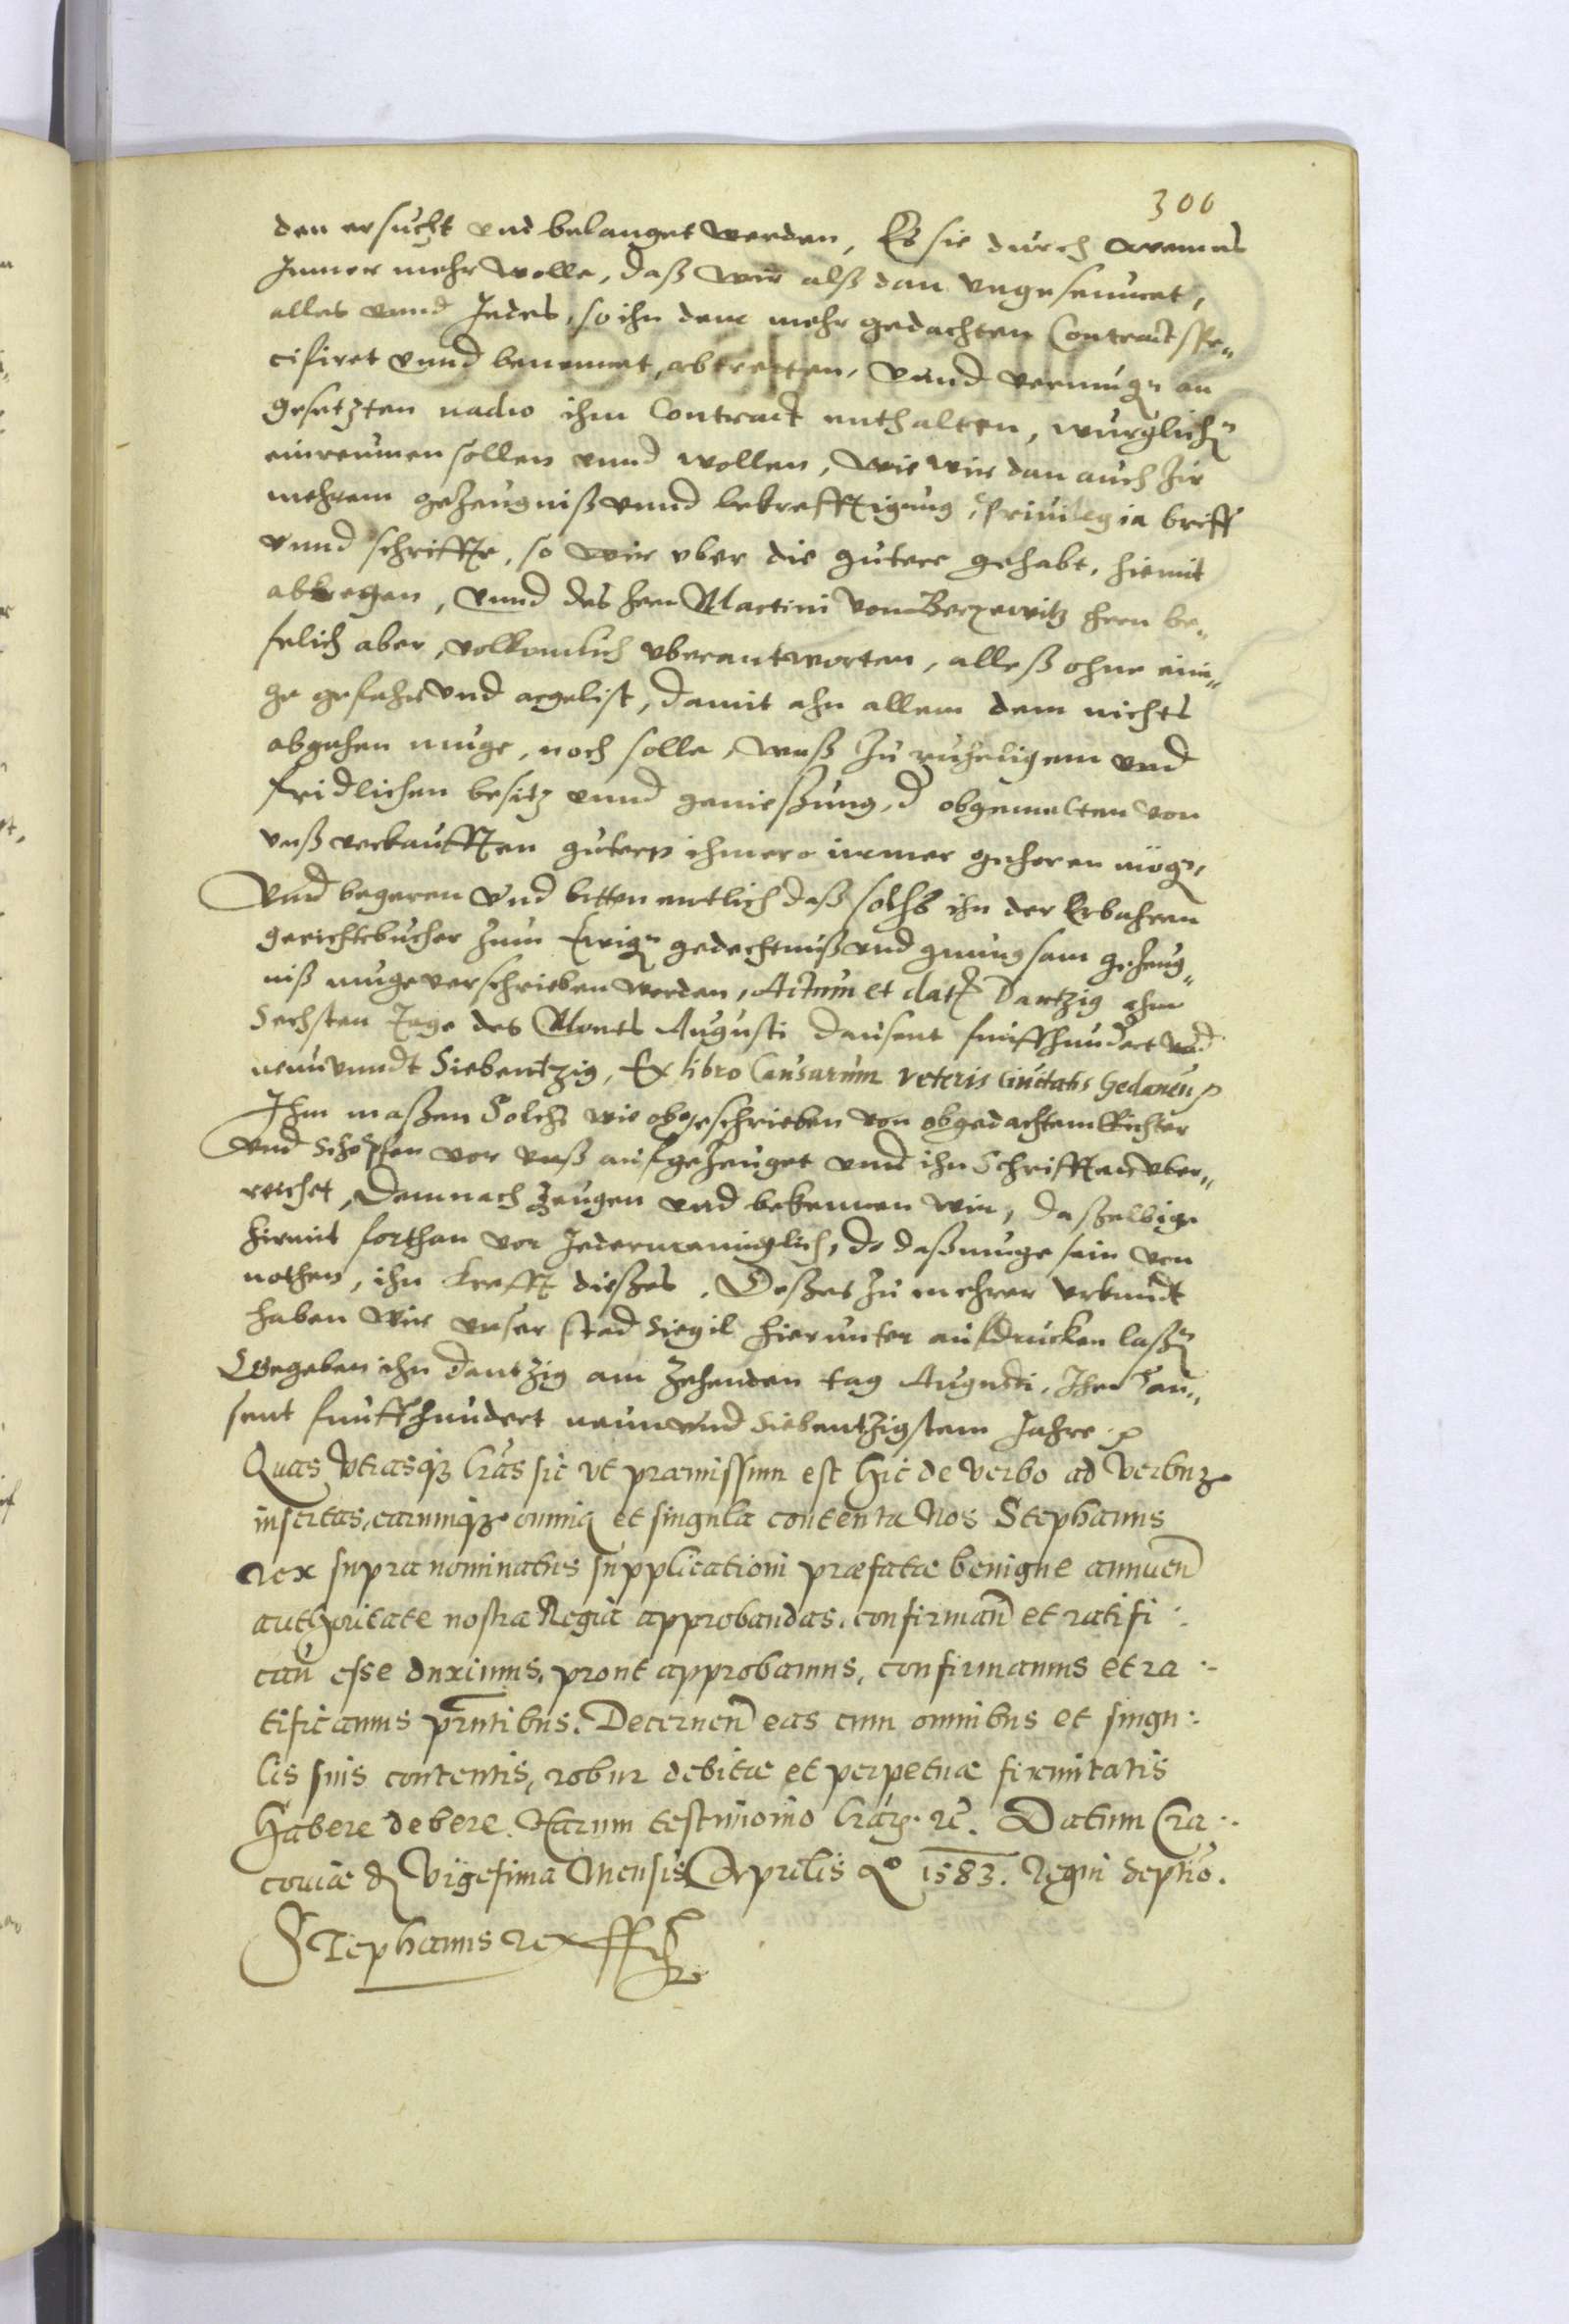 300
den ersucht und belanget werden, Es sie durch wemes
Jmmer mehr wolle, daß wir alß dan ungeseumet,
alles unnd Jedes, so ihn dem mehr gedachten Contract spe„
cifiret unnd benennet, abtretten, unnd vermugen an
gesetzten vadio ihm Contract enthalten, wurglichen
einreumen sollen unnd wollen, wie wir dan auch zir
mehrem gezeugniß unnd bekrefftigung, Priuilegia brieff
unnd schriffte, so wir vber die gutere gehabt, hiemit
abtregen, unnd des hern Martini von Berzewitz hern be„
felich aber, volkomlich vberantworten, alleß ohne eini„
ge gefahr und argelist, damit ahn allem dem nichts
abgehen muge, noch solle, waß zu ruheligem und
fridlichen besitz unnd genießung, d obgemelten von
unß verkaufften gutern ihmero immer gehoren mögen,
Und begeren und bitten entlich daß solchs ihn der Erbahren
gerichtsbucher zum Ewigen gedechtniß und gnungsam gezeug„
niß muge verschrieben werden, Actum et datum Dantzig ahm
Sechsten Tage des Monts Augusti dausent funffhundert und
neun unndt Siebentzig, Ex libro Causarum veteris Ciuitatis Gedanen
Ihm maßen Solchs wie obgeschrieben von obgedachtem Richter
und Schöpfen vor unß aufgezeuget unnd ihn Schrifften vber„
reichet, Demnach Zeugen und bekennen wir, daßelbige
hirmit forthan vor Jedermenniglich, do daß muge sein von
nothen, ihn krafft dießes. Deßes zu mehrer urkundt
haben wir unser stad Siegil hierunter aufdrucken laßen
Gegeben ihn dantzig am zehenden tag Augusti, Ihm dau„
sent funffhundert neun und Siebentzigstem Jahre
Quas vtrasque lras sic vt præmissum est hic de verbo ad verbum
insertas, earumque omnia et singula contenta Nos Stephanus
Rex supra nominatus supplicationi præfatæ benigne annuen
authoritate nostra Regia approbandas, confirman et ratifi :
can esse duximus, prout approbamus, confirmamus et ra :-
tificamus prntibus. Decernen eas cum omnibus et singu :-
lis suis contentis, robur debitæ et perpetuæ firmitatis
habere debere. Harum testimonio lrarum rc. Datum Cra :-
couiæ d vigesima Mensis Aprilis Ao 1583. Regni
Stephanus Rex sst